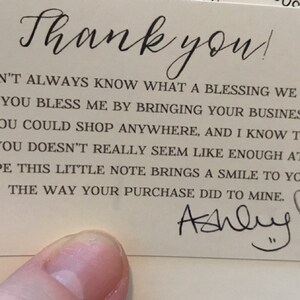 Thank you!
N'T ALWAYS KNOW WHAT A BLESSING WE
YOU BLESS ME BY BRINGING YOUR BUSINES
OU COULD SHOP ANYWHERE, AND I KNOW T
YOU DOESN'T REALLY SEEM LIKE ENOUGH AT
PE THIS LITTLE NOTE BRINGS A SMILE TO YO
THE WAY YOUR PURCHASE DID TO MINE.
Ashley